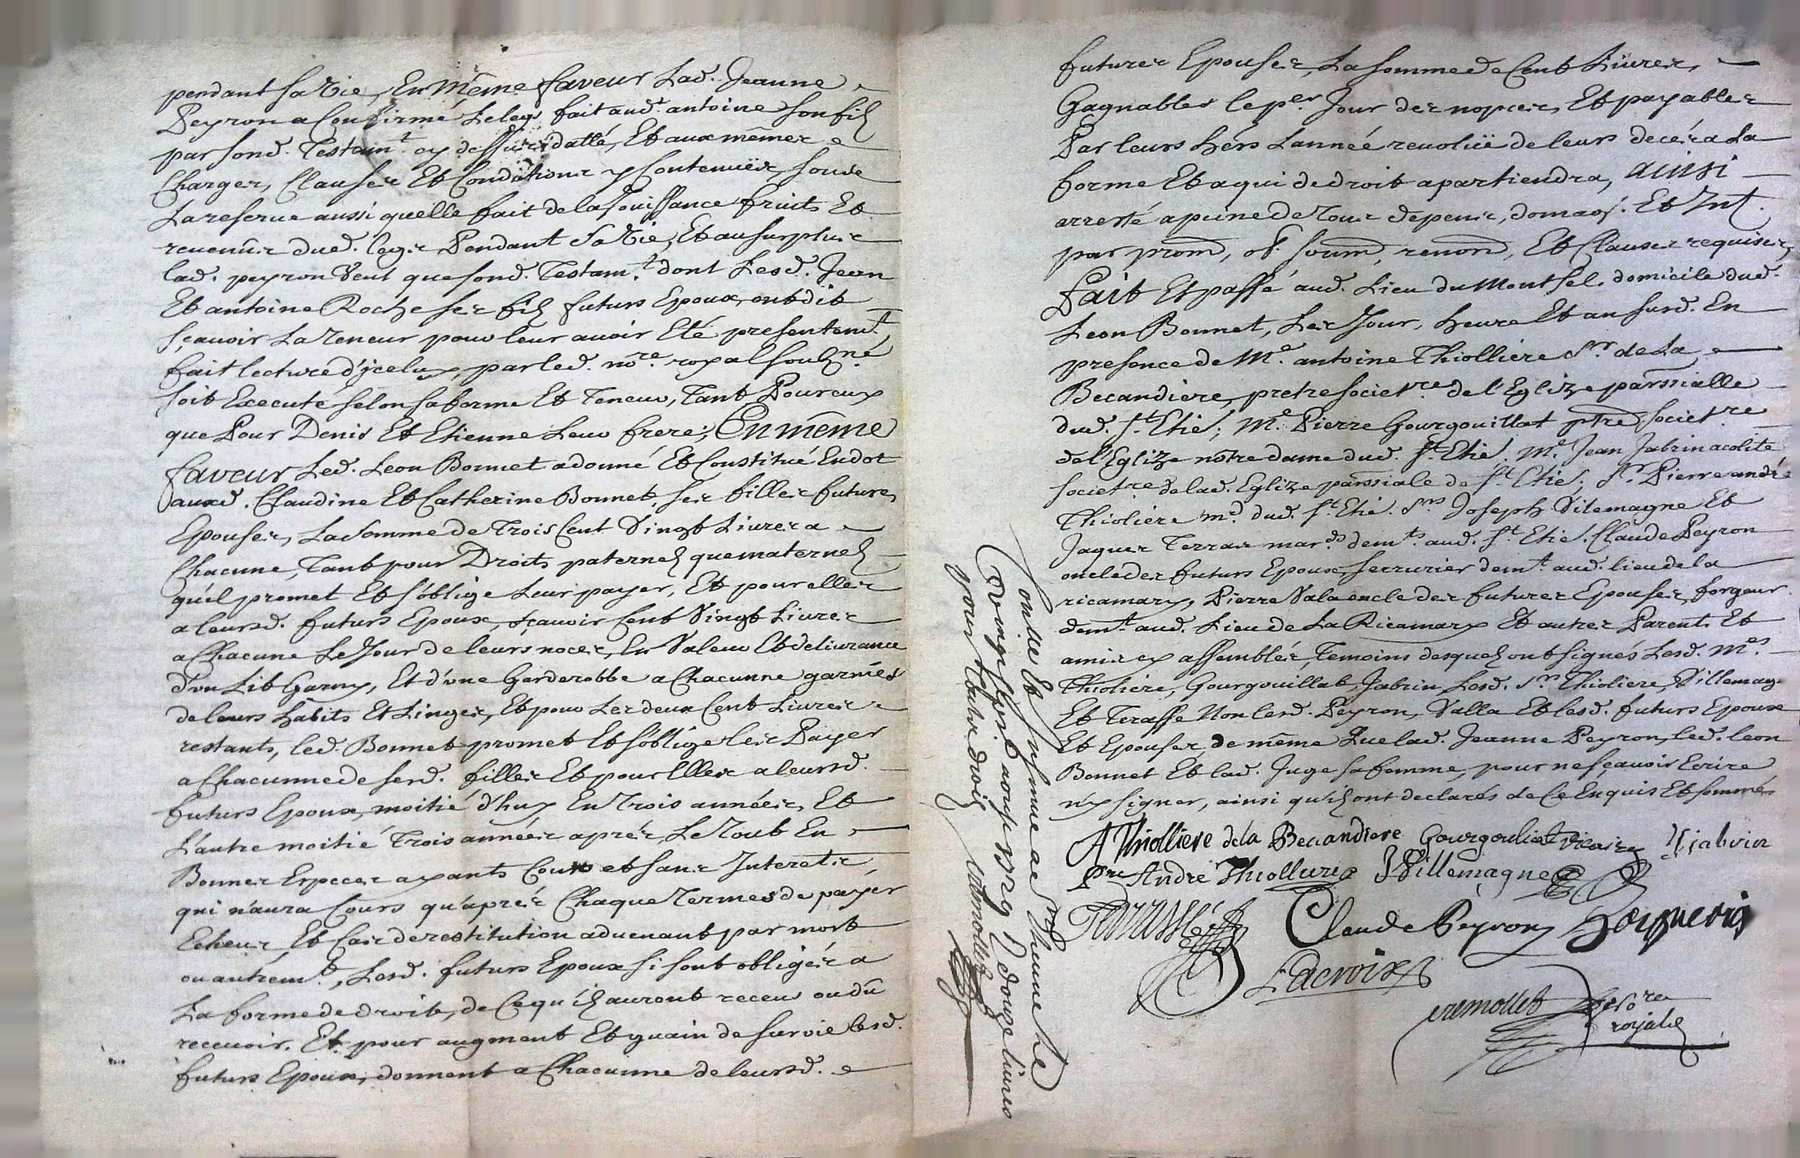 pendant sa vie, En même faveur Lad. Jeanne
Peyron a Confirmé Le leg fait aud. antoine son fils
par sond. Testamt. cy dessus datté, Et aux mêmes
Charges, Clauses Et Conditions y Contenües, sous
La reserve aussi quelle fait de la Jouissance fruits Et
revenus dud. legs Pendant sa vie, Et au surplus
lad. peyron Veut que sond. Testamt. dont Lesd. Jean
Et antoine Roche ses fils futurs Epoux, ont dit
sçavoir La teneur pour leur avoir Eté presentemt.
fait lecture d'jceluy, par led. nore. royal soubzné
soit Executé selon sa forme Et Teneur, Tant Pour eux
que Pour Denis Et Etienne Leur frere, En même
faveur Led. Leon Bonnet a donné Et Constitué En dot
auxd. Claudine Et Catherine Bonnet, ses filles futures
Epouses, La somme de Trois Cent Vingt Livres a
Chacune, Tant pour Droits paternels que maternels
qu'il promet Et s'oblige Leur payer, Et pour elles
a leursd. futurs Epoux, sçavoir Cent Vingt Livres
a Chacune Le Jour de leurs noces, En Valeur Et delivrance
d'un Lit Garny, Et d'une Garderobbe a Chacunne garnies
de leurs habits Et Linges, Et pour Les deux Cent Livres
restants, led. Bonnet promet Et s'oblige les Payer
a Chacunne de sesd. filles Et pour Elles a leursd.
futurs Epoux, moitié d'huy En Trois années, Et
L'autre moitié Trois années aprés, Le Tout En
Bonnes Especes ayants Cours et sans Interets
qui n'aura Cours qu'aprés Chaque Termes de payer
Echeus, Et Cas de restitution advenant par mort
ou autremt., Lesd. futurs Epoux si sont obligés a
La forme de droit, de Ce qu'ils auront receu ou dû
recevoir. Et pour augment Et guain de survie lesd.
futurs Epoux, donnent a Chacunne de leursd.
futures Epouses, La somme de Cent Livres,
Gagnables le per Jour des nopces, Et payables
Par leurs hers L'année revolüe de leurs decés a La
forme Et a qui de droit apartiendra, ainsi
arresté a peine de Tous depens, domags. Et Int.
par prom, ob. soum, renon, Et Clauses requises,
Fait Et passé aud. Lieu du Montsel, domicile dud.
Leon Bonnet, Les Jour, heure Et an susd. En
presence de Me. antoine Thiolliere Sr. de La
Becandiere, pretre societre de l'Eglize parssialle
dud. St. Etie; Me. Pierre Gourgouillat ptre societre
de l'Eglize notre dame dud. St. Etie. Me. Jean Jabrin acolite
societre de lad. Eglize parssiale de St. Etie; Sr. Pierre andré
Thioliere md. dud. St. Etie. Srs Joseph Vilemagne Et
Jaques Terras mards demts. aud. St. Etie. Claude Peyron
oncle des futurs Epoux, serrurier demt. aud. lieu de la
ricamary, Pierre Vala oncle des futures Epouses, forgeur
demt. aud. Lieu de La Ricamary Et autres Parents Et
amis cy assemblés, Temoins desquels ont signés Lesd. Mes
Thioliere, Gourgouillat, Jabrin, Lesd. Srs Thioliere, Villemagne
Et Terasse Non lesd. Peyron, Valla Et lesd. futurs Epoux
Et Epouses, de même Que lad. Jeanne Peyron, led. Leon
Bonnet Et lad. Juge sa femme, pour ne sçavoir Ecrire
n'y signer, ainsi qu'ils ont declarés de Ce Enquis Et sommés
A Thiolliere de la Becandiere Gourgouliat vicaire J jabrin
Pre André Thiolliere J Villemagne
Terrasse Claude Peyron
Lacroix
cremollet nore
royale
Conllé Et
vingt sept aoust 1729 R douze livres
pour droits cremollet